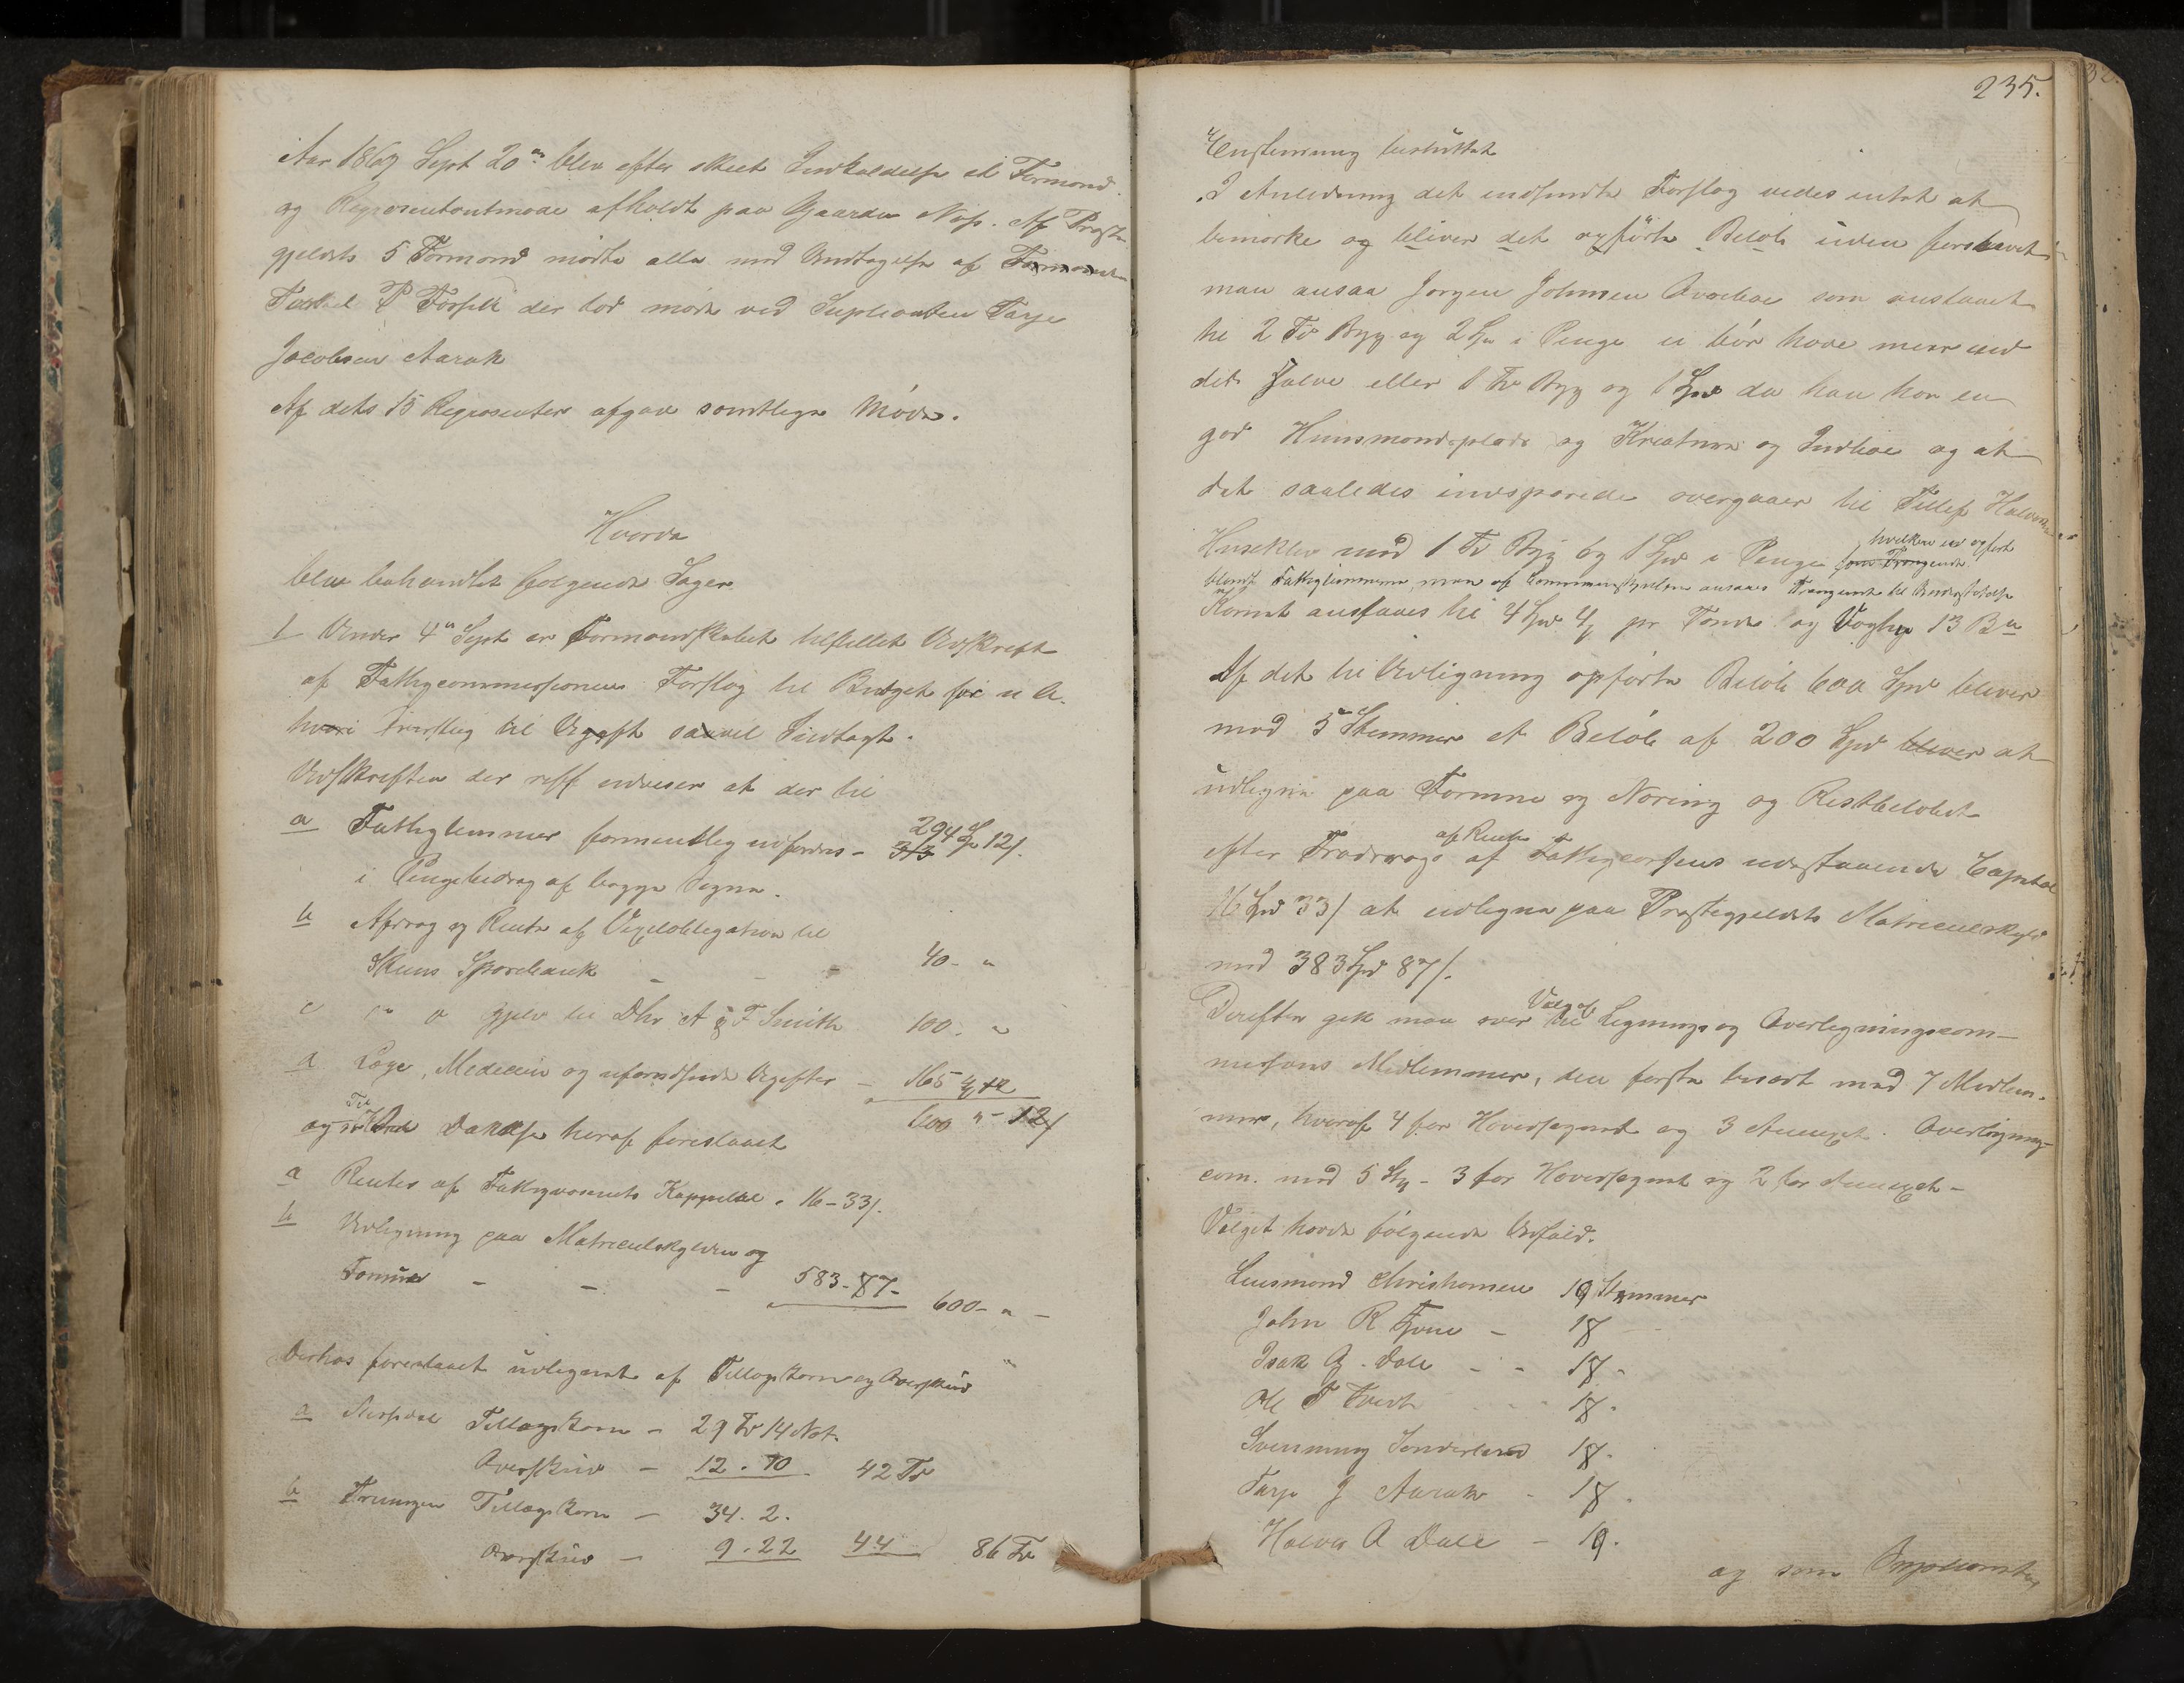 Aar 1869 Sept 20de blev efter skeet Indkaldelse et Formand
og Representantmøde afholdt paa Gaarden Næs. Af Præste
gjeldets 5 Formænd mødte alle med Undtagelse af Formand
Tarkel P Fosseli der lod møde ved Suplianten Tarje
Jacobsen Aarak
Af dets 15 Representer afgav samtlige Møde.
Hvorda
blev behandlet følgende Sager
1 Under 4de Sept er Formandskabet tilstillet Udskrift
af Fattigcommissionens Forslag til Budget for
hvori Forslag til Udgift saavel Indtægt.
Udskriften der udviser at der til
a Fattiglemmer formentlig udfordres - 313 294 Sp 12/.
i Pengebidrag af begge Sogne.
b Afdrag og Rente af Vexelobligation til
Skiens Sparebank - - - 40 - "
c " " gjeld til Dhr A & F Smith 100. "
d Læge, Medecin og uforudsete Udgifter - 165 " 12
600 " - 12/
og Til Dækkelse heraf foreslaaet
a Renter af Fattigvæsenets Kappital . 16-33/.
b Udligning paa Matrieulskylden og
Formue - - - 583-87- 600- " -
Derhos foreslaaet udlignet af Tillægskorn og Overskud
a Tillægskorn - 29 Td 14 Not.
Overskud - 12 . 10 42 Td
b Trungen Tillægskorn - 34. 2.
Overskud - 9.22 44 86 Td
235.
Enstemmig besluttet
I Anledning det indsendte Forslag vedes intet at
bemærke og bliver det opførte Beløb uden forsaavidt
man ansaa Jørgen Johnsen som ansaaet
til 2 Td Byg og 2 Spd i Penge ei bør have mere end
det halve eller 1 Td Byg og 1 Spd da han har en
god Huusmandsplads og Kreature og Indboe og at
det saaledes indsparede overgaaer til Tellef Halvors
Huseklev med 1 Td Byg og 1 Spd i Penge som Trængende hvilken er opført
blandt Fattiglemmerne, men af Commissionen ansaaes Trængende til
Kornet ansaaes til 4 Spd pr Tønde og
Af det til Udligning opførte Beløb 600 Spd bliver
med 5 Stemmer et Beløb af 200 Spd bliver at
udligne paa Formue og Næring og Restbeløbet
efter Fradrag af Rente af Fattigcassens udestaaende Capital
16 Spd 33/ at udligne paa Præstegjeldets Matrieulskyld
med 383 Spd 87/.
Derefter gik man over til Valg af Lignings og Overligningscom-
misions Medlemmer, den første besat med 7 Medlem-
mer, hveraf 4 for Hovedsognet og 3 Annexet. Overlignings-
com. med 5 Stk - 3 for Hovedsognet og 2 for Annexet -
Valget havde følgende Udfald.
Lensmand Christiansen 19 Stemmer
John R Tveit - 18 -
Isak G. Dale - - 18 -
Ole T Tveit - - 18.
Svenning Sønderland 18.
Tarje J Aarak - 18.
Halvor A Dale - 19.
og som Suplianter